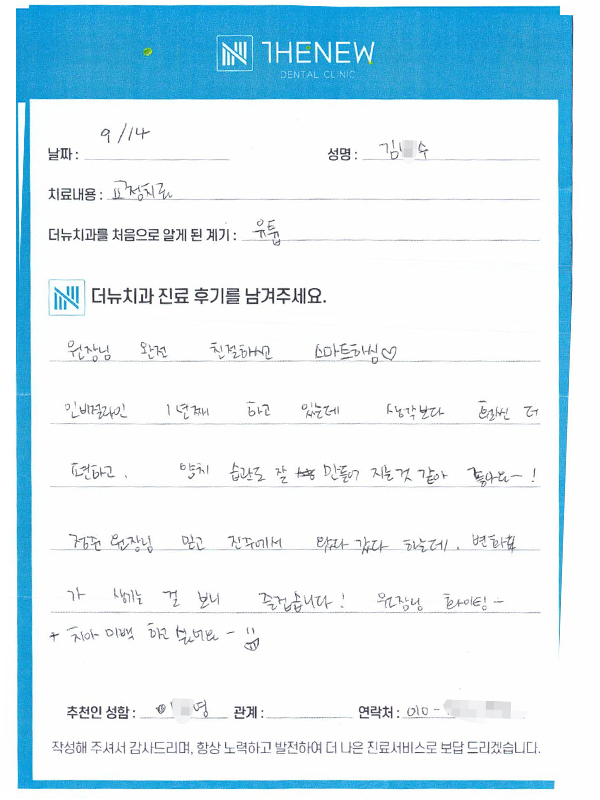 THENEW
DENTAL CLINIC
날짜 : 9/14 성명 : 김 수
치료내용 : 교정치료
더뉴치과를 처음으로 알게 된 계기 : 유튭
더뉴치과 진료 후기를 남겨주세요.
원장님 완전 친절하시고 스마트하심♡
인비절라인 1년째 하고 있는데 생각보다 훨씬 더
편하고, 양치 습관도 잘 만들어 지는것 같아 좋아요~!
원장님 믿고 진주에서 왔다 갔다 하는데, 변화
가 생기는 걸 보니 즐겁습니다! 원장님 화이팅~
+ 치아 미백 하고 싶어요~
추천인 성함 : 영 관계 : 연락처 : 010-
작성해 주셔서 감사드리며, 항상 노력하고 발전하여 더 나은 진료서비스로 보답 드리겠습니다.